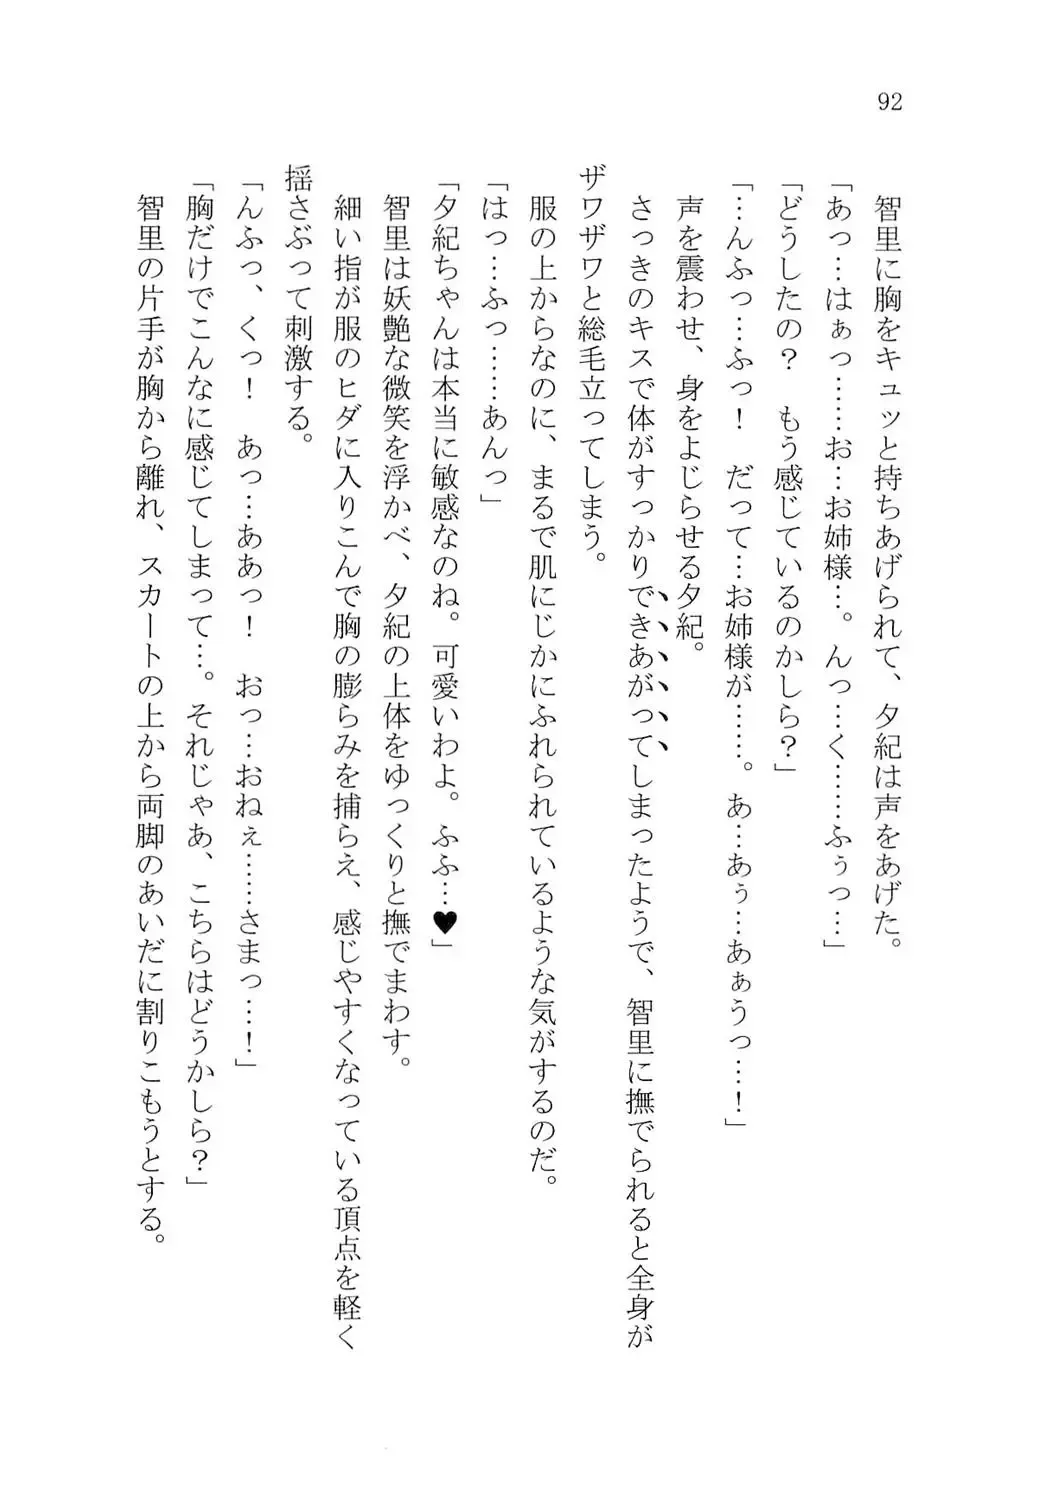 92
智里に胸をキュッと持ちあげられて、夕紀は声をあげた。
「あっ…はぁっ……お…お姉様…。んっ…く……ふぅっ…」
「どうしたの？　もう感じているのかしら？」
「…んふっ…ふっ！　だって…お姉様が……。あ…あぅ…あぁうっ…！」
声を震わせ、身をよじらせる夕紀。
さっきのキスで体がすっかりできあがってしまったようで、智里に撫でられると全身が
ザワザワと総毛立ってしまう。
服の上からなのに、まるで肌にじかにふれられているような気がするのだ。
「はっ…ふっ……あんっ」
「夕紀ちゃんは本当に敏感なのね。可愛いわよ。ふふ…♥」
智里は妖艶な微笑を浮かべ、夕紀の上体をゆっくりと撫でまわす。
細い指が服のヒダに入りこんで胸の膨らみを捕らえ、感じやすくなっている頂点を軽く
揺さぶって刺激する。
「んふっ、くっ！　あっ…ああっ！　おっ…おねぇ……さまっ…！」
「胸だけでこんなに感じてしまって…。それじゃあ、こちらはどうかしら？」
智里の片手が胸から離れ、スカートの上から両脚のあいだに割りこもうとする。